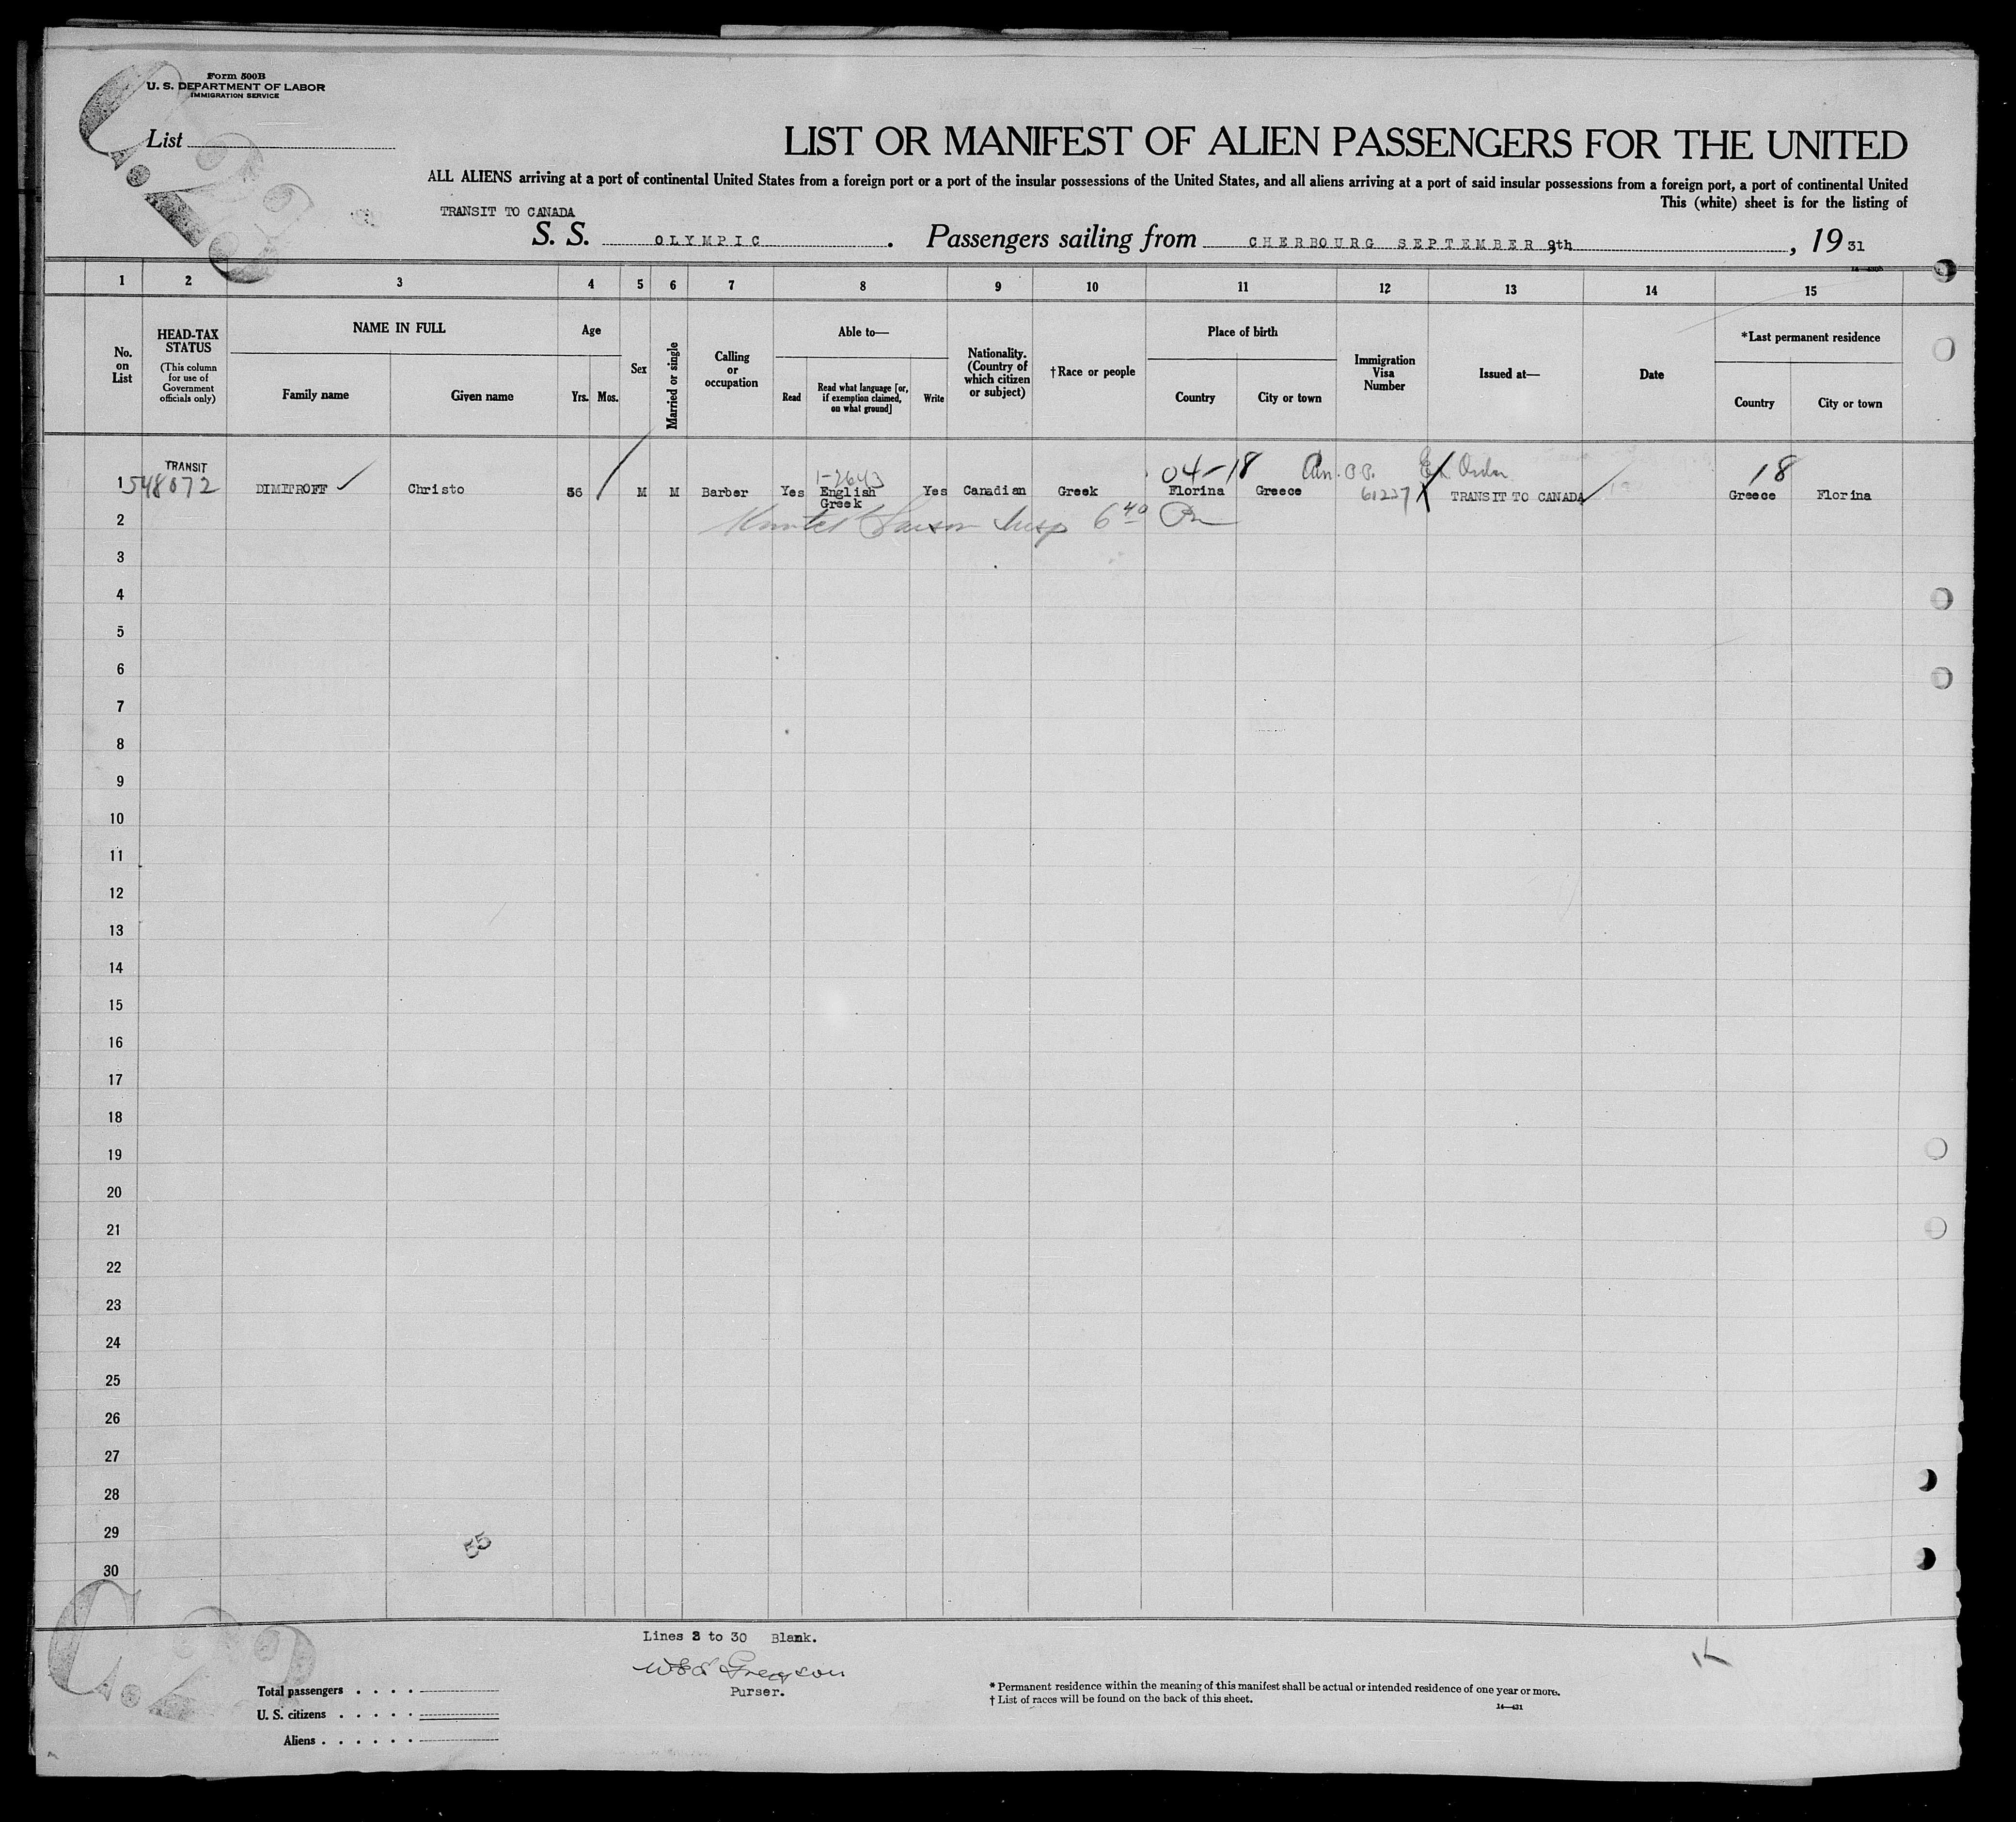 Form 500B
U. S. DEPARTMENT OF LABOR
IMMIGRATION SERVICE
List
LIST OR MANIFEST OF ALIEN PASSENGERS FOR THE UNITED
ALL ALIENS arriving at a port of continental United States from a foreign port or a port of the insular possessions of the United States, and all aliens arriving at a port of said insular possessions from a foreign port, a port of continental United
This (white) sheet is for the listing of
TRANSIT TO CANADA
S. S. OLYMPIC. Passengers sailing from CHERBOURG SEPTEMBER 9th, 1931
1 2 3 4 5 6 7 8 9 10 11 12 13 14 15
No. on List
HEAD-TAX STATUS
(This column for use of Government officials only)
NAME IN FULL
Family name
Given name
Age
Yrs. Mos.
Sex
Married or single
Calling or occupation
Able to—
Read
Read what language [or, if exemption claimed, on what ground]
Write
Nationality. (Country of which citizen or subject)
†Race or people
Place of birth
Country
City or town
Immigration Visa Number
Issued at—
Date
*Last permanent residence
Country
City or town
TRANSIT 1-2643 04-18 Can. Ex Order 18
1 548072 DIMITROFF Christo 36 M M Barber Yes English Yes Canadian Greek Florina Greece 61227 TRANSIT TO CANADA Greece Florina
Greek
2 Insp 6 40
3
4
5
6
7
8
9
10
11
12
13
14
15
16
17
18
19
20
21
22
23
24
25
26
27
28
29
55
30
Lines 2 to 30 Blank.
Gregson
Purser.
Total passengers . . . .
U. S. citizens . . . . .
Aliens . . . . . .
* Permanent residence within the meaning of this manifest shall be actual or intended residence of one year or more.
† List of races will be found on the back of this sheet.
14—431